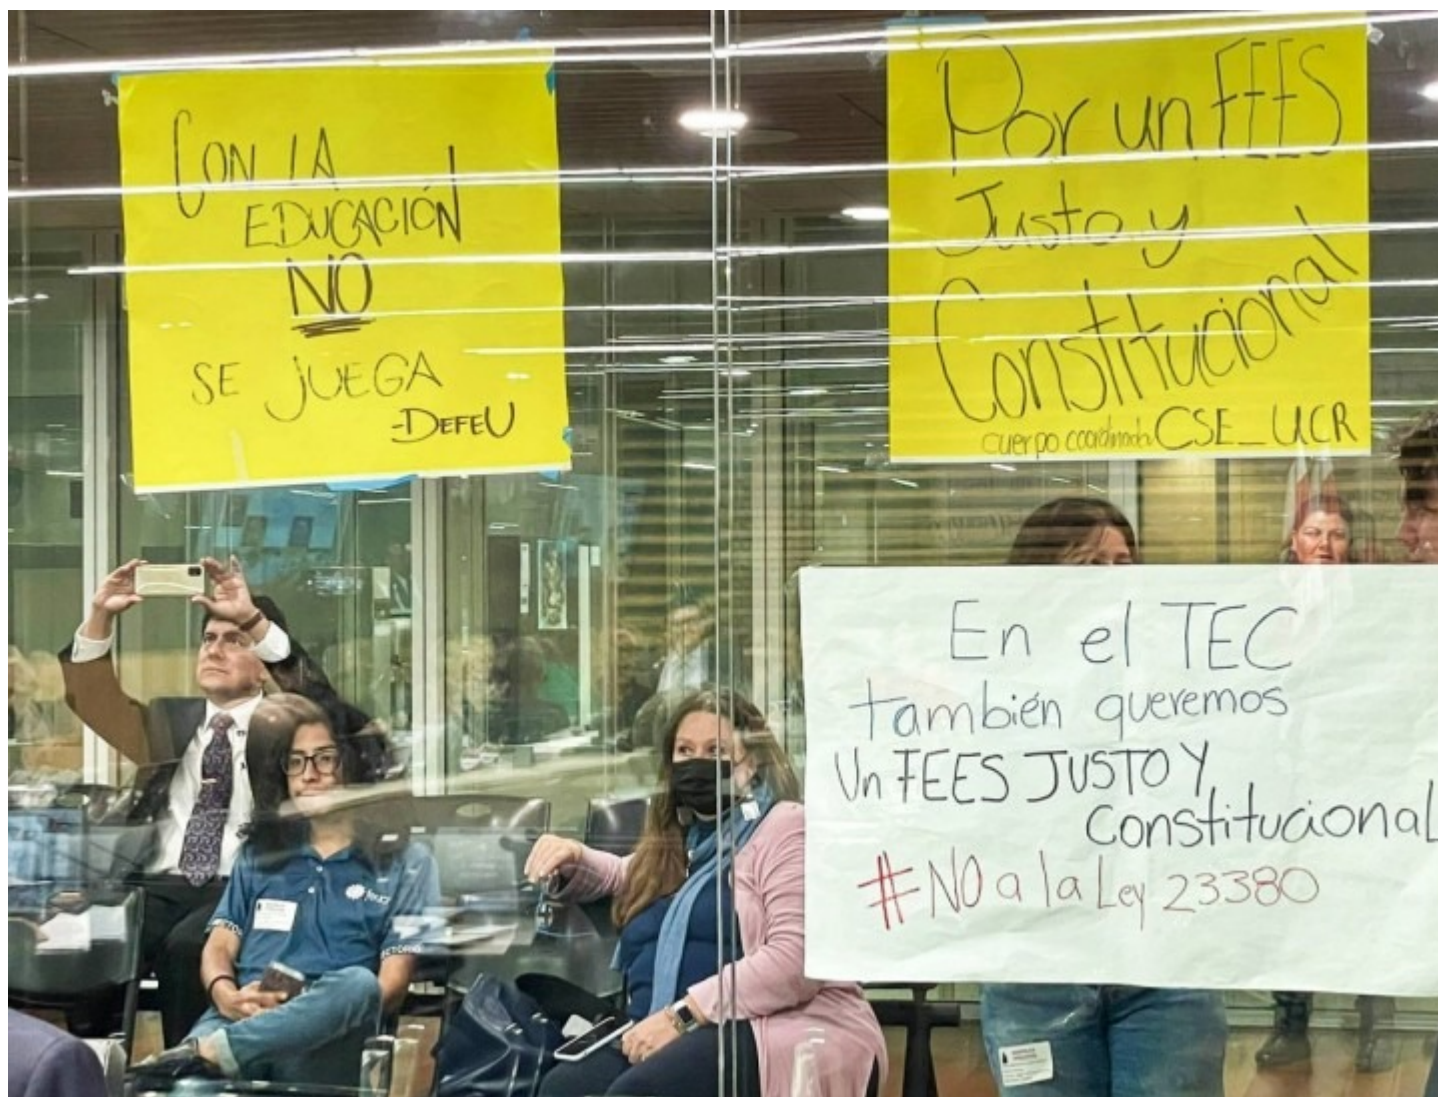 CON LA
EDUCACIÓN
NO
SE JUEGA
-DEFEU
Por un FEES
Justo y
Constitucional
cuerpo coordinador CSE_UCR
En el TEC
también queremos
Un FEES JUSTO Y
Constitucional
#NO a la Ley 23380